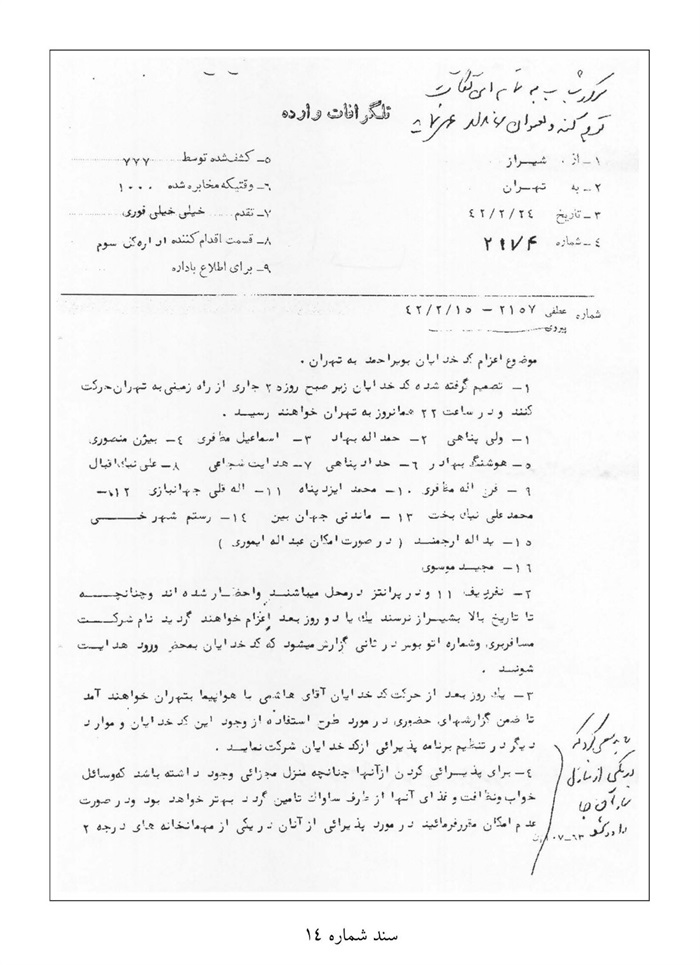 تلگرافات وارده
۱ـ از شیراز
۲ـ به تهران
۳ـ تاریخ ۴۲/۲/۲۴
۴ـ شماره ۲۹۷۴
۵ـ کشف‌شده توسط ۷۷۷
۶ـ وقتیکه مخابره شده ۱۰۰۰
۷ـ تقدم خیلی خیلی فوری
۸ـ قسمت اقدام کننده اداره کل سوم
۹ـ برای اطلاع باداره
شماره عطفی پیروی ۲۱۵۷ – ۴۲/۲/۱۵
موضوع اعزام کدخدایان بویراحمد به تهران .
۱ـ تصمیم گرفته شده کدخدایان زیر صبح روزه ۲ جاری از راه زمینی به تهران حرکت
کنند و در ساعت ۲۲ همانروز به تهران خواهند رسید .
۱ـ ولی پناهی ۲ـ حمداله بهاد ۳ـ اسماعیل مظفری ۴ـ بیژن منصوری
۵ـ هوشنگ بهادر ۶ـ حداد پناهی ۷ـ هدایت شجاعی ۸ـ علی نیک اقبال
۹ـ فرج اله مظفری ۱۰ـ محمد ایزدپناه ۱۱ـ اله قلی جهانبازی ۱۲ـ
محمدعلی نیک بخت ۱۳ـ ماندنی جهان بین ۱۴ـ رستم شهر خـــی
۱۵ـ یداله ارجمند ( در صورت امکان عبداله ایموری )
۱۶ـ مجید موسوی
۲ـ نفر ردیف ۱۱ و در پرانتز در محل میباشند و احضار شده اند و چنانچـــه
تا تاریخ بالا بشیراز نرسند یك یا دو روز بعد اعزام خواهند گردید نام شرکت
مسافربری و شماره اتوبوس در ثانی گزارش میشود که کدخدایان بمحض ورود هدایت
شوند .
۳ـ یك روز بعد از حرکت کدخدایان آقای هاشمی با هواپیما بتهران خواهند آمد
تا ضمن گزارشهای حضوری در مورد طرح استفاده از وجود این کدخدایان و موارد
دیگر در تنظیم برنامه پذیرائی از کدخدایان شرکت نمایند .
۴ـ برای پذیـرائی کردن از آنها چنانچه منزل مجزائی وجود داشته باشد که وسائل
خواب و نظافت و غذای آنها از طرف ساواك تامین گردد بهتر خواهد بود و در صورت
عدم امکان مقرر فرمائید در مورد پذیرائی از آنان در یکی از مهمانخانه های درجه ۲
سند شماره ۱٤